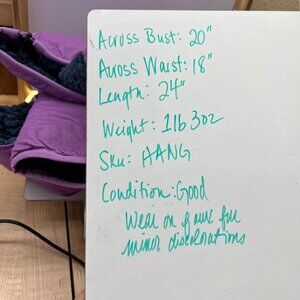 Across Bust: 20"
Across Waist: 18"
Length: 24"
Weight: 1lb 3oz
Sku: HANG
Condition: Good
Wear on
minor discolorations